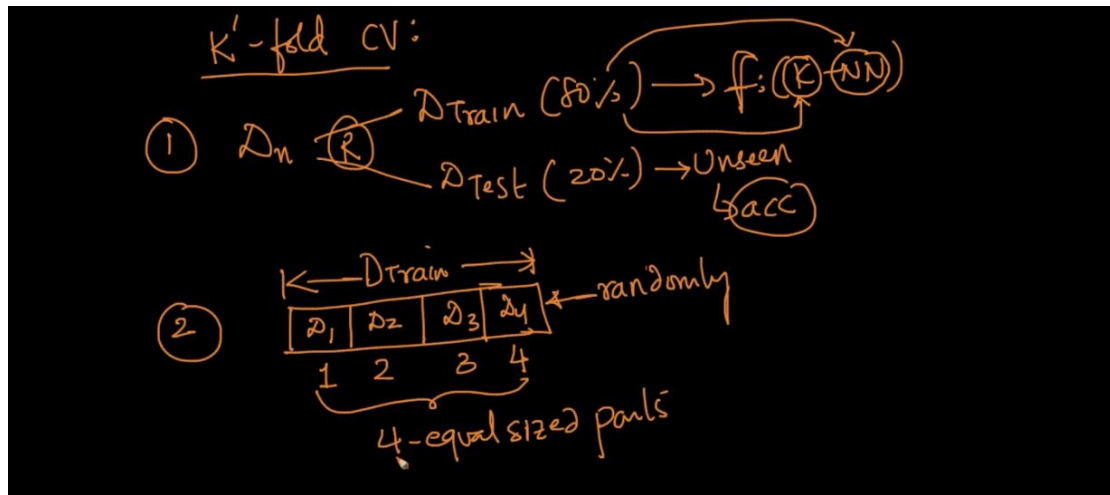 K'-fold CV:
DTrain (80%) → f: (K-NN)
1 Dn R
DTest (20%) → Unseen
↳ acc
DTrain
D1 D2 D3 D4 ← randomly
2
1 2 3 4
4-equal sized parts